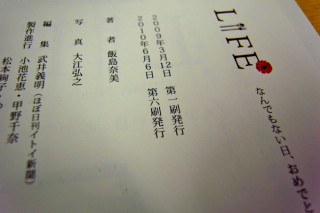 LIFE
なんでもない日、おめでと
2009年3月12日　第一刷発行
2010年6月6日　第六刷発行
著者　飯島奈美
写真　大江弘之
編集　武井義明(ほぼ日刊イトイ新聞)
製作進行　小池花恵・甲野千奈
松本絢子